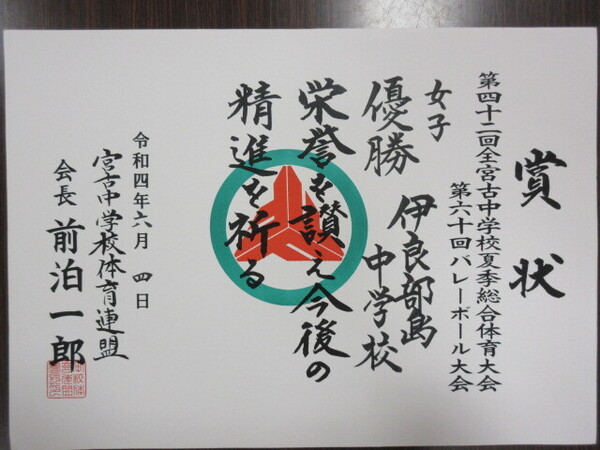 賞状
第四十二回全宮古中学校夏季総合体育大会
第六十回バレーボール大会
女子
優勝 伊良部島
中学校
栄誉を讃え今後の
精進を祈る
令和四年六月 四 日
宮古中学校体育連盟
会長 前泊一郎